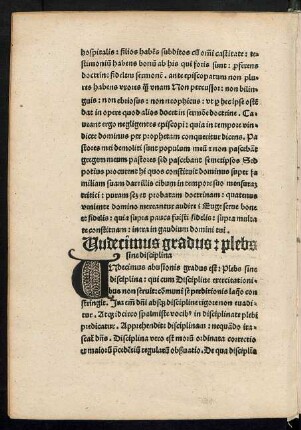 hospitalis: filios habẽs subditos cũ om̃i castitate: te-
stimoniũ habens bonũ ab his qui foris sunt:
doctrin: fidelem sermonẽ. ante episcopatum non plu
res habens vxores qȝ vnam Non percussor: non bilin
guis: non ebriosus: non neophitus: vt p hec ipse
dat in opere quod alios docet in sermone doctrine. Ca
veant ergo negligentes episcopi: quia in tempore vin
dicte dominus per prophetam conqueritur dicens. Pa
stores mei demoliti sunt populum meũ: non pascebãt
gregem meum pastores sed pascebant semetipsos Sed
potius procurent hi quos constituit dominus super fa
miliam suam dare illis cibum in tempore suo mensuram
tritici: puram scȝ et probatam doctrinam: quatenus
veniente domino mereantur audire: Euge serue bone
et fidelis: quia supra pauca fuisti fidelis: supra multa
te constituam: intra in gaudium domini tui.
Undecimus gradus: plebs
sine disciplina
UNdecimus abusionis gradus est: Plebs sine
disciplina: qui cum discipline exercitationi-
bus non seruit: comuni se perditionis laq̃o con
stringit. disciplie rigore non euadi
tur. Atq̃ idcirco spalmiste vocibꝰ indisciplinate plebi
predicatur. Apprehendite disciplinam: nequãdo irasca
tur dñs. Disciplina vero est morũ ordinata correctio
et maiorũ p̃cedẽtiũ regularũ obseruatio. De qua disciplia